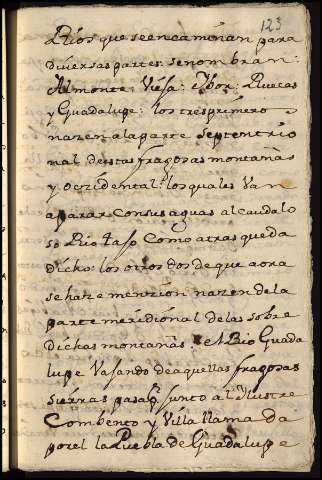 123
Rios que se encaminan para
diversas partes: senombran:
Almonte: Viesa: Ybor: Ruecas
y Guadalupe: los tres primero
nazen alaparte septentrio
nal deestas fragosas montañas
y oczidental: los quales Van
aparar Consus aguas al caudalo
so Rio taJo Como atras queda
dicho: los otros dos de que aora
sehaze menzion nazen dela
parte meridional delas sobre
dichas montañas: el Rio Guada
lupe Vajando deaquellas fragosas
sierras pasa Junto al Ilustre
Combento y Villa llama da
porel la Puebla de Guadalupe